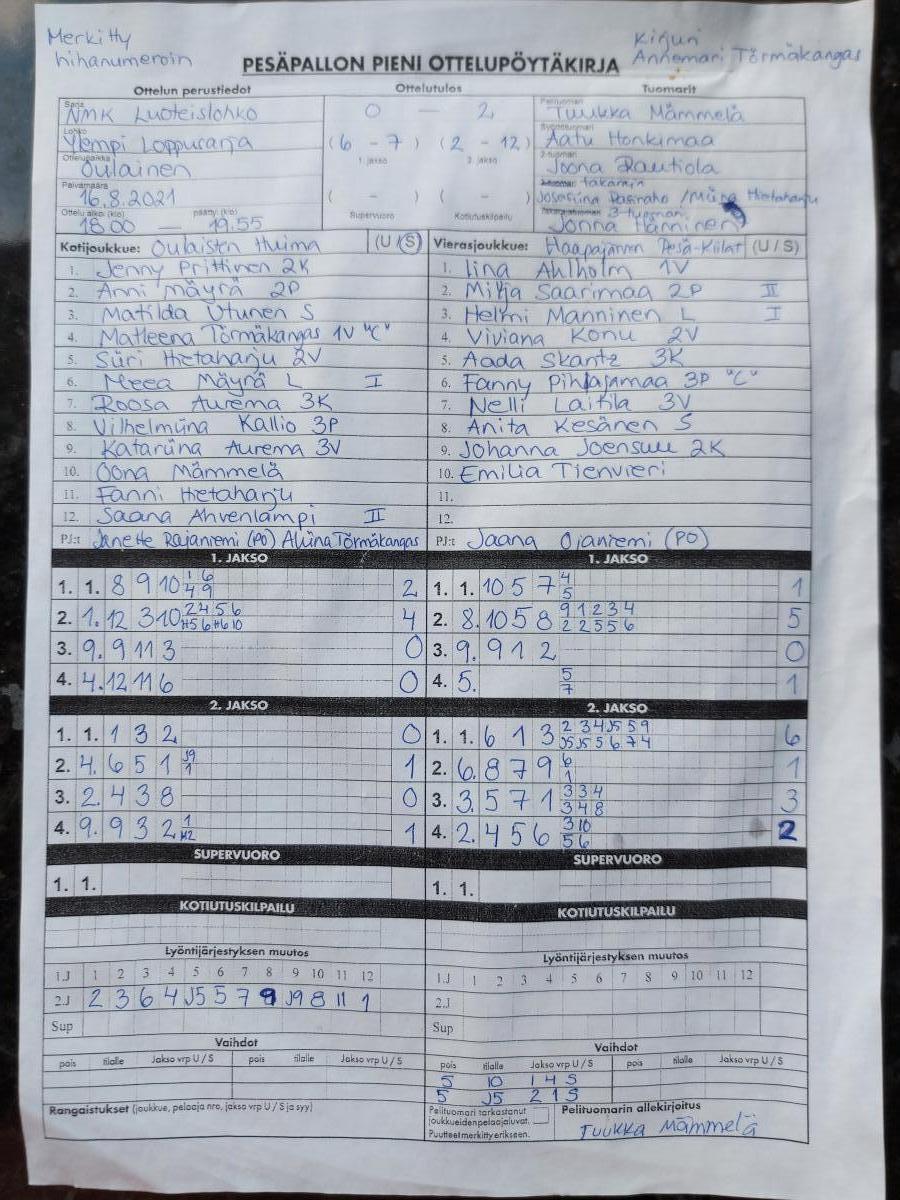 Merkitty
hihanumeroin
Kirjuri
Annemari Törmäkangas
PESÄPALLON PIENI OTTELUPÖYTÄKIRJA
Ottelun perustiedot Ottelutulos Tuomarit
Sarja NMK Luoteislohko
Lohko Ylempi Loppusarja
Ottelupaikka Oulainen
Päivämäärä 16.8.2021
Ottelu alkoi (klo) päättyi (klo)
18.00 — 19.55
0 — 2
(6 - 7) (2 - 12)
1. jakso 2. jakso
( - ) ( - )
Supervuoro Kotiutuskilpailu
Pelituomari Tuukka Mämmelä
Syöttötuomari Aatu Honkimaa
2-tuomari Joona Rautiola
takaraja
3-tuomari
Jonna Hänninen
Kotijoukkue: Oulaisten Huima (U / S)
1. Jenny Prittinen 2K
2. Anni Mäyrä 2P
3. Matilda Utunen S
4. Matleena Törmäkangas 1V "C"
5. Siiri Hietaharju 2V
6. Meea Mäyrä L I
7. Roosa Aurema 3K
8. Vilhelmiina Kallio 3P
9. Katariina Aurema 3V
10. Oona Mämmelä
11. Fanni Hietaharju
12. Saana Ahvenlampi II
PJ:t Janette Rajaniemi (PO) Aliina Törmäkangas
Vierasjoukkue: Haapajärven Pesä-Kiilat (U / S)
1. Iina Ahlholm 1V
2. Milja Saarimaa 2P II
3. Helmi Manninen L I
4. Viviana Konu 2V
5. Aada Skantz 3K
6. Fanny Pihlajamaa 3P "C"
7. Nelli Laitila 3V
8. Anita Kesänen S
9. Johanna Joensuu 2K
10. Emilia Tienvieri
11.
12.
PJ:t Jaana Ojaniemi (PO)
1. JAKSO
1. 1. 8 9 10 1 6 2
4 9
2. 1. 12 3 10 2 4 5 6 4
H5 6 H6 10
3. 9. 9 11 3 0
4. 4. 12 11 6 0
1. JAKSO
1. 1. 10 5 7 4 1
5
2. 8. 10 5 8 9 1 2 3 4 5
2 2 5 5 6
3. 9. 9 1 2 0
4. 5. 5 1
7
2. JAKSO
1. 1. 1 3 2 0
2. 4. 6 5 1 J9 1
1
3. 2. 4 3 8 0
4. 9. 9 3 2 1 1
H2
2. JAKSO
1. 1. 6 1 3 2 3 4 J5 5 9 6
J5 J5 5 6 7 4
2. 6. 8 7 9 6 1
1
3. 3. 5 7 1 3 3 4 3
3 4 8
4. 2. 4 5 6 3 10 2
5 6
SUPERVUORO
1. 1.
SUPERVUORO
1. 1.
KOTIUTUSKILPAILU
KOTIUTUSKILPAILU
Lyöntijärjestyksen muutos
1.J 1 2 3 4 5 6 7 8 9 10 11 12
2.J 2 3 6 4 J5 5 7 9 J9 8 11 1
Sup
Lyöntijärjestyksen muutos
1.J 1 2 3 4 5 6 7 8 9 10 11 12
2.J
Sup
Vaihdot
pois tilalle Jakso vrp U / S pois tilalle Jakso vrp U / S
Vaihdot
pois tilalle Jakso vrp U / S pois tilalle Jakso vrp U / S
5 10 1 4 S
5 J5 2 1 S
Rangaistukset (joukkue, pelaaja nro, jakso vrp U / S ja syy)
Pelituomari tarkastanut
joukkueiden pelaajaluvat.
Puutteet merkitty erikseen.
Pelituomarin allekirjoitus
Tuukka Mämmelä